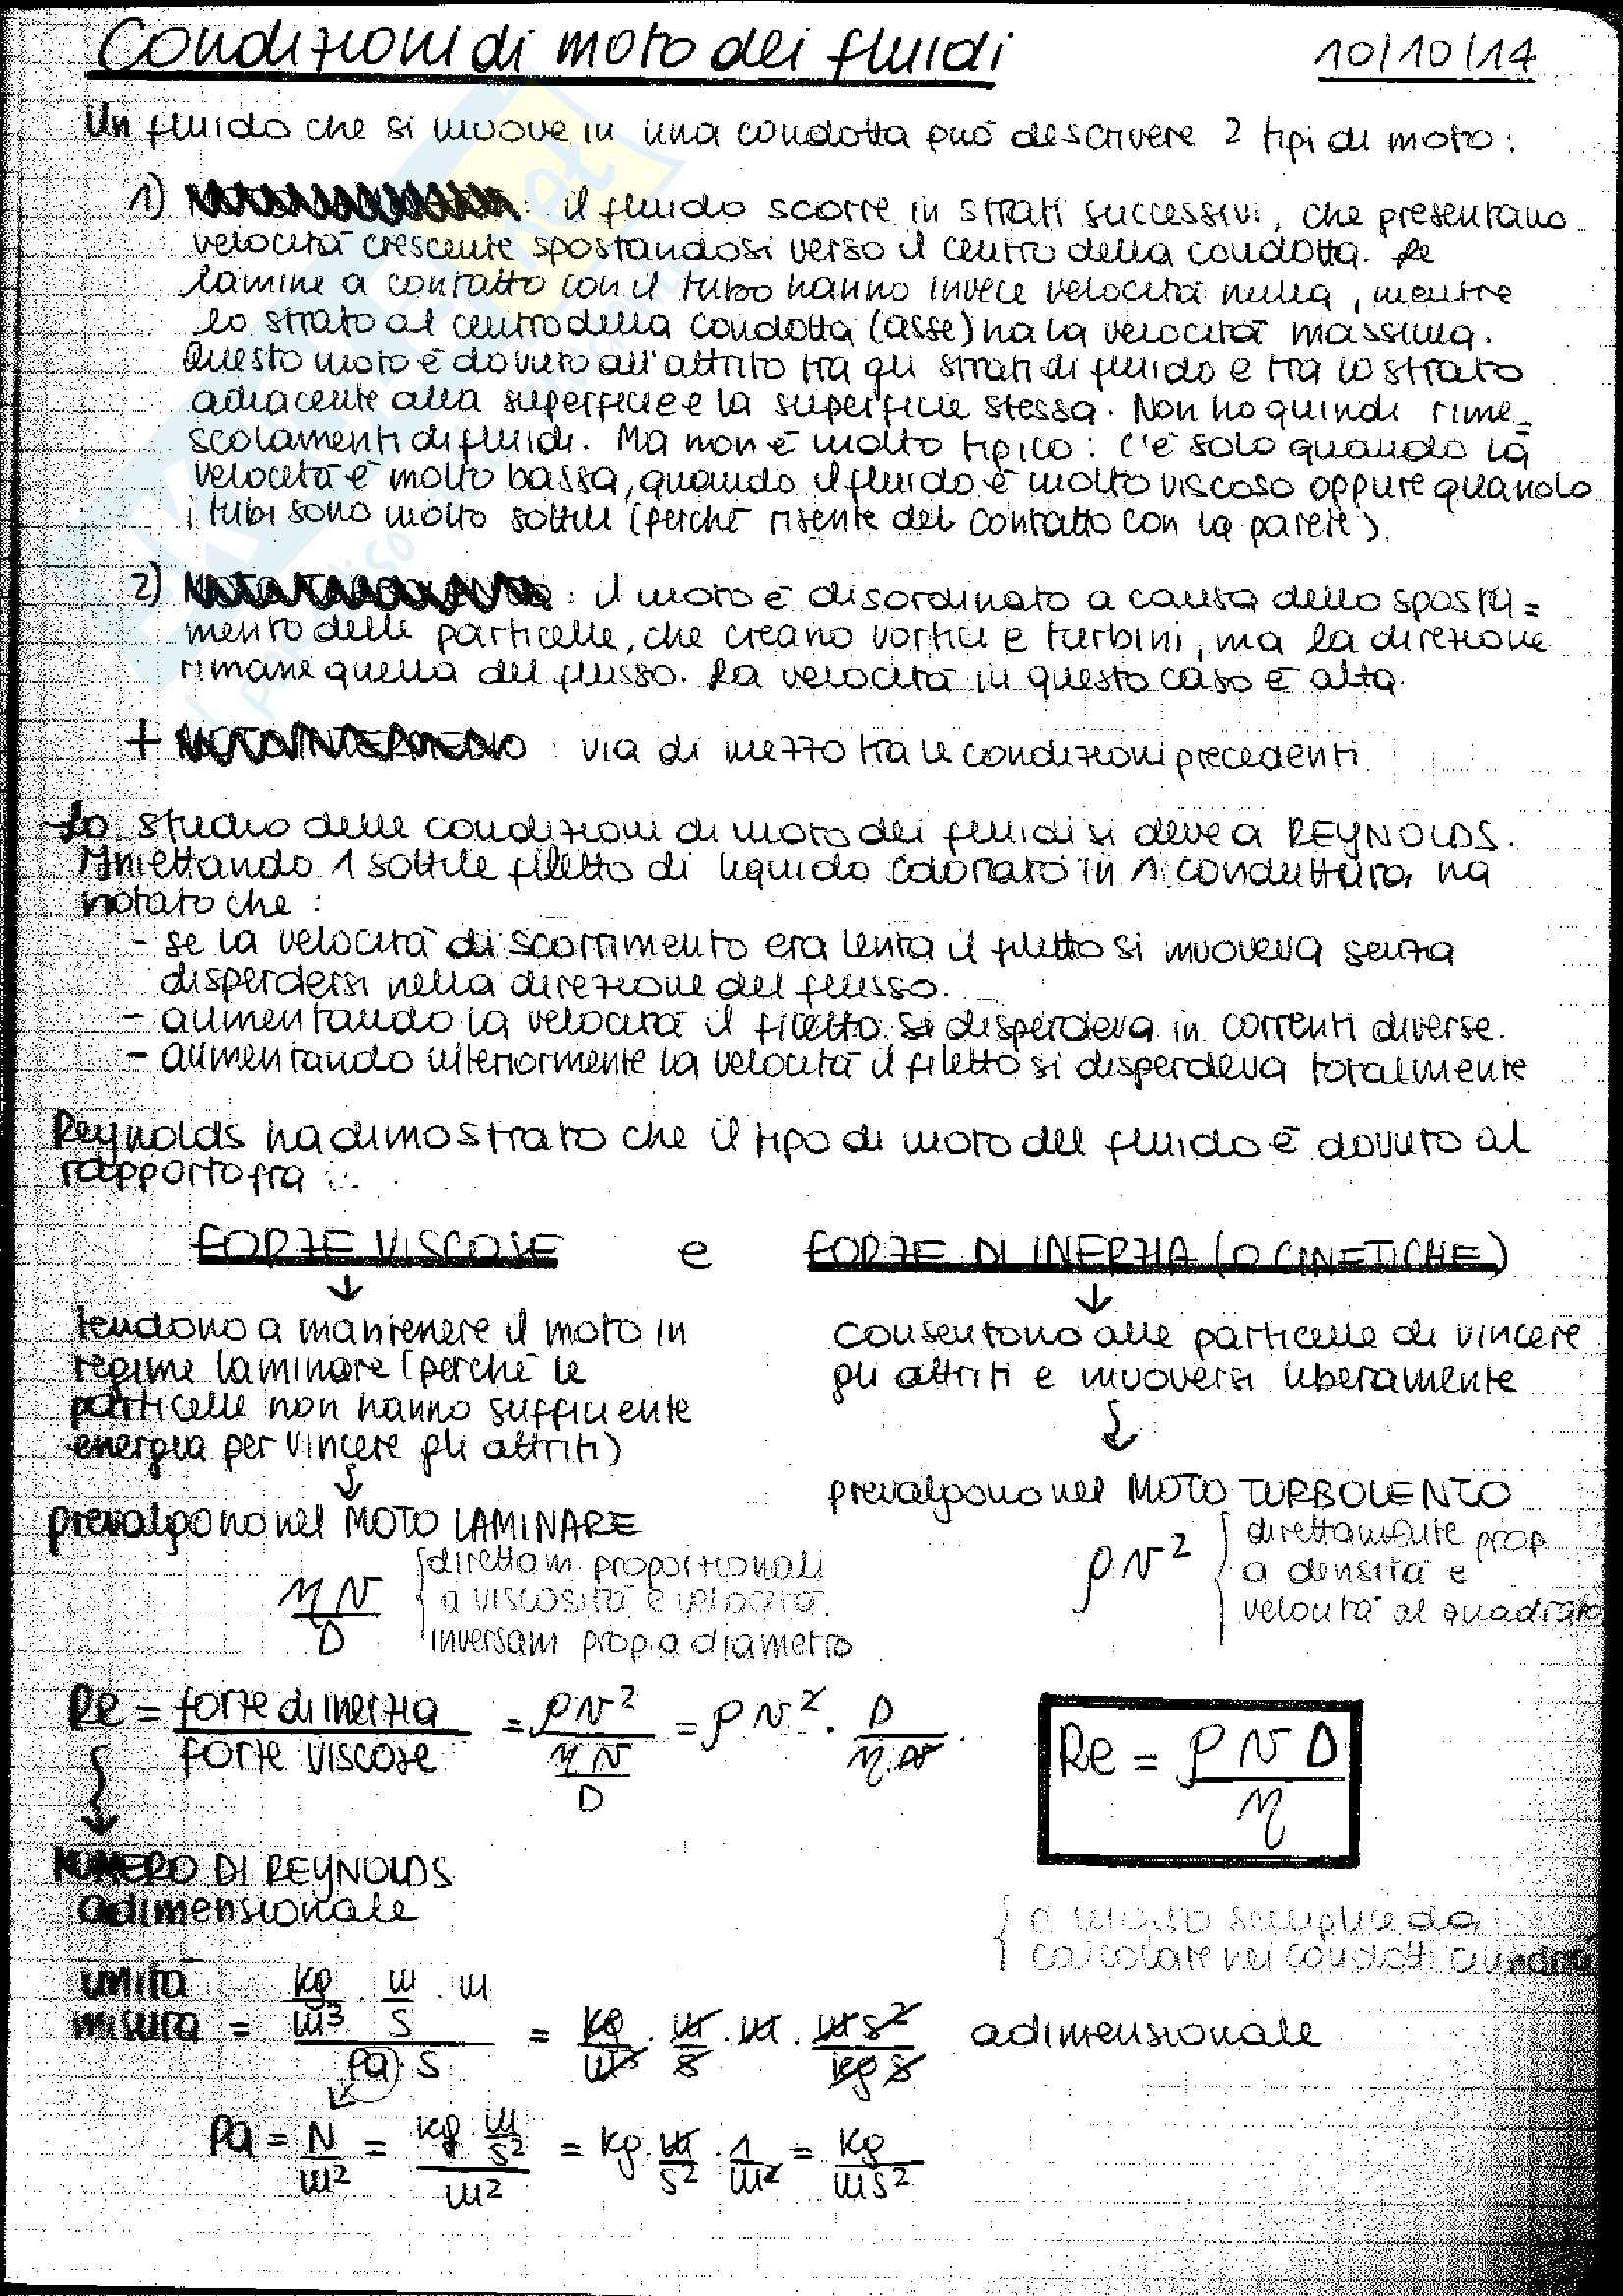 Condizioni di moto dei fluidi 10/10/14
Un fluido che si muove in una condotta può descrivere 2 tipi di moto:
1) : il fluido scorre in strati successivi, che presentano
velocità crescente spostandosi verso il centro della condotta. Le
lamine a contatto con il tubo hanno invece velocità nulla, mentre
lo strato al centro della condotta (asse) ha la velocità massima.
Questo moto è dovuto all'attrito tra gli strati di fluido e tra lo strato
adiacente alla superficie e la superficie stessa. Non ho quindi rime-
scolamenti di fluidi. Ma non è molto tipico: c'è solo quando la
velocità è molto bassa, quando il fluido è molto viscoso oppure quando
i tubi sono molto sottili (perché risente del contatto con la parete).
2) : il moto è disordinato a causa dello sposta=
mento delle particelle, che creano vortici e turbini, ma la direzione
rimane quella del flusso. La velocità in questo caso è alta.
+ MOTO INTERMEDIO : via di mezzo tra le condizioni precedenti
Lo studio delle condizioni di moto dei fluidi si deve a REYNOLDS.
Iniettando 1 sottile filetto di liquido colorato in 1 conduttura, ha
notato che :
- se la velocità di scorrimento era lenta il filetto si muoveva senza
disperdersi nella direzione del flusso.
- aumentando la velocità il filetto si disperdeva in correnti diverse.
- aumentando ulteriormente la velocità il filetto si disperdeva totalmente
Reynolds ha dimostrato che il tipo di moto del fluido è dovuto al
rapporto fra :
FORZE VISCOSE e FORZE DI INERZIA (O CINETICHE)
↓ ↓
tendono a mantenere il moto in
regime laminare (perché le
particelle non hanno sufficiente
energia per vincere gli attriti)
↓
prevalgono nel MOTO LAMINARE
ηv/D { direttam. proporzionali
a viscosità e velocità
inversam prop a diametro
consentono alle particelle di vincere
gli attriti e muoversi liberamente
↓
prevalgono nel MOTO TURBOLENTO
ρv² { direttamente prop
a densità e
velocità al quadrato
Re = forze di inerzia / forze viscose = ρv² / (ηv/D) = ρv² · D/(η·v)
Re = ρvD/η
NUMERO DI REYNOLDS
adimensionale
semplice da
calcolare nei condotti
unità
misura = (kg/m³ · m/s · m) / (Pa·s) = kg/m³ · m/s · m · m s²/(kg s) adimensionale
Pa = N/m² = (kg · m/s²)/m² = kg · m/s² · 1/m² = kg/(m s²)